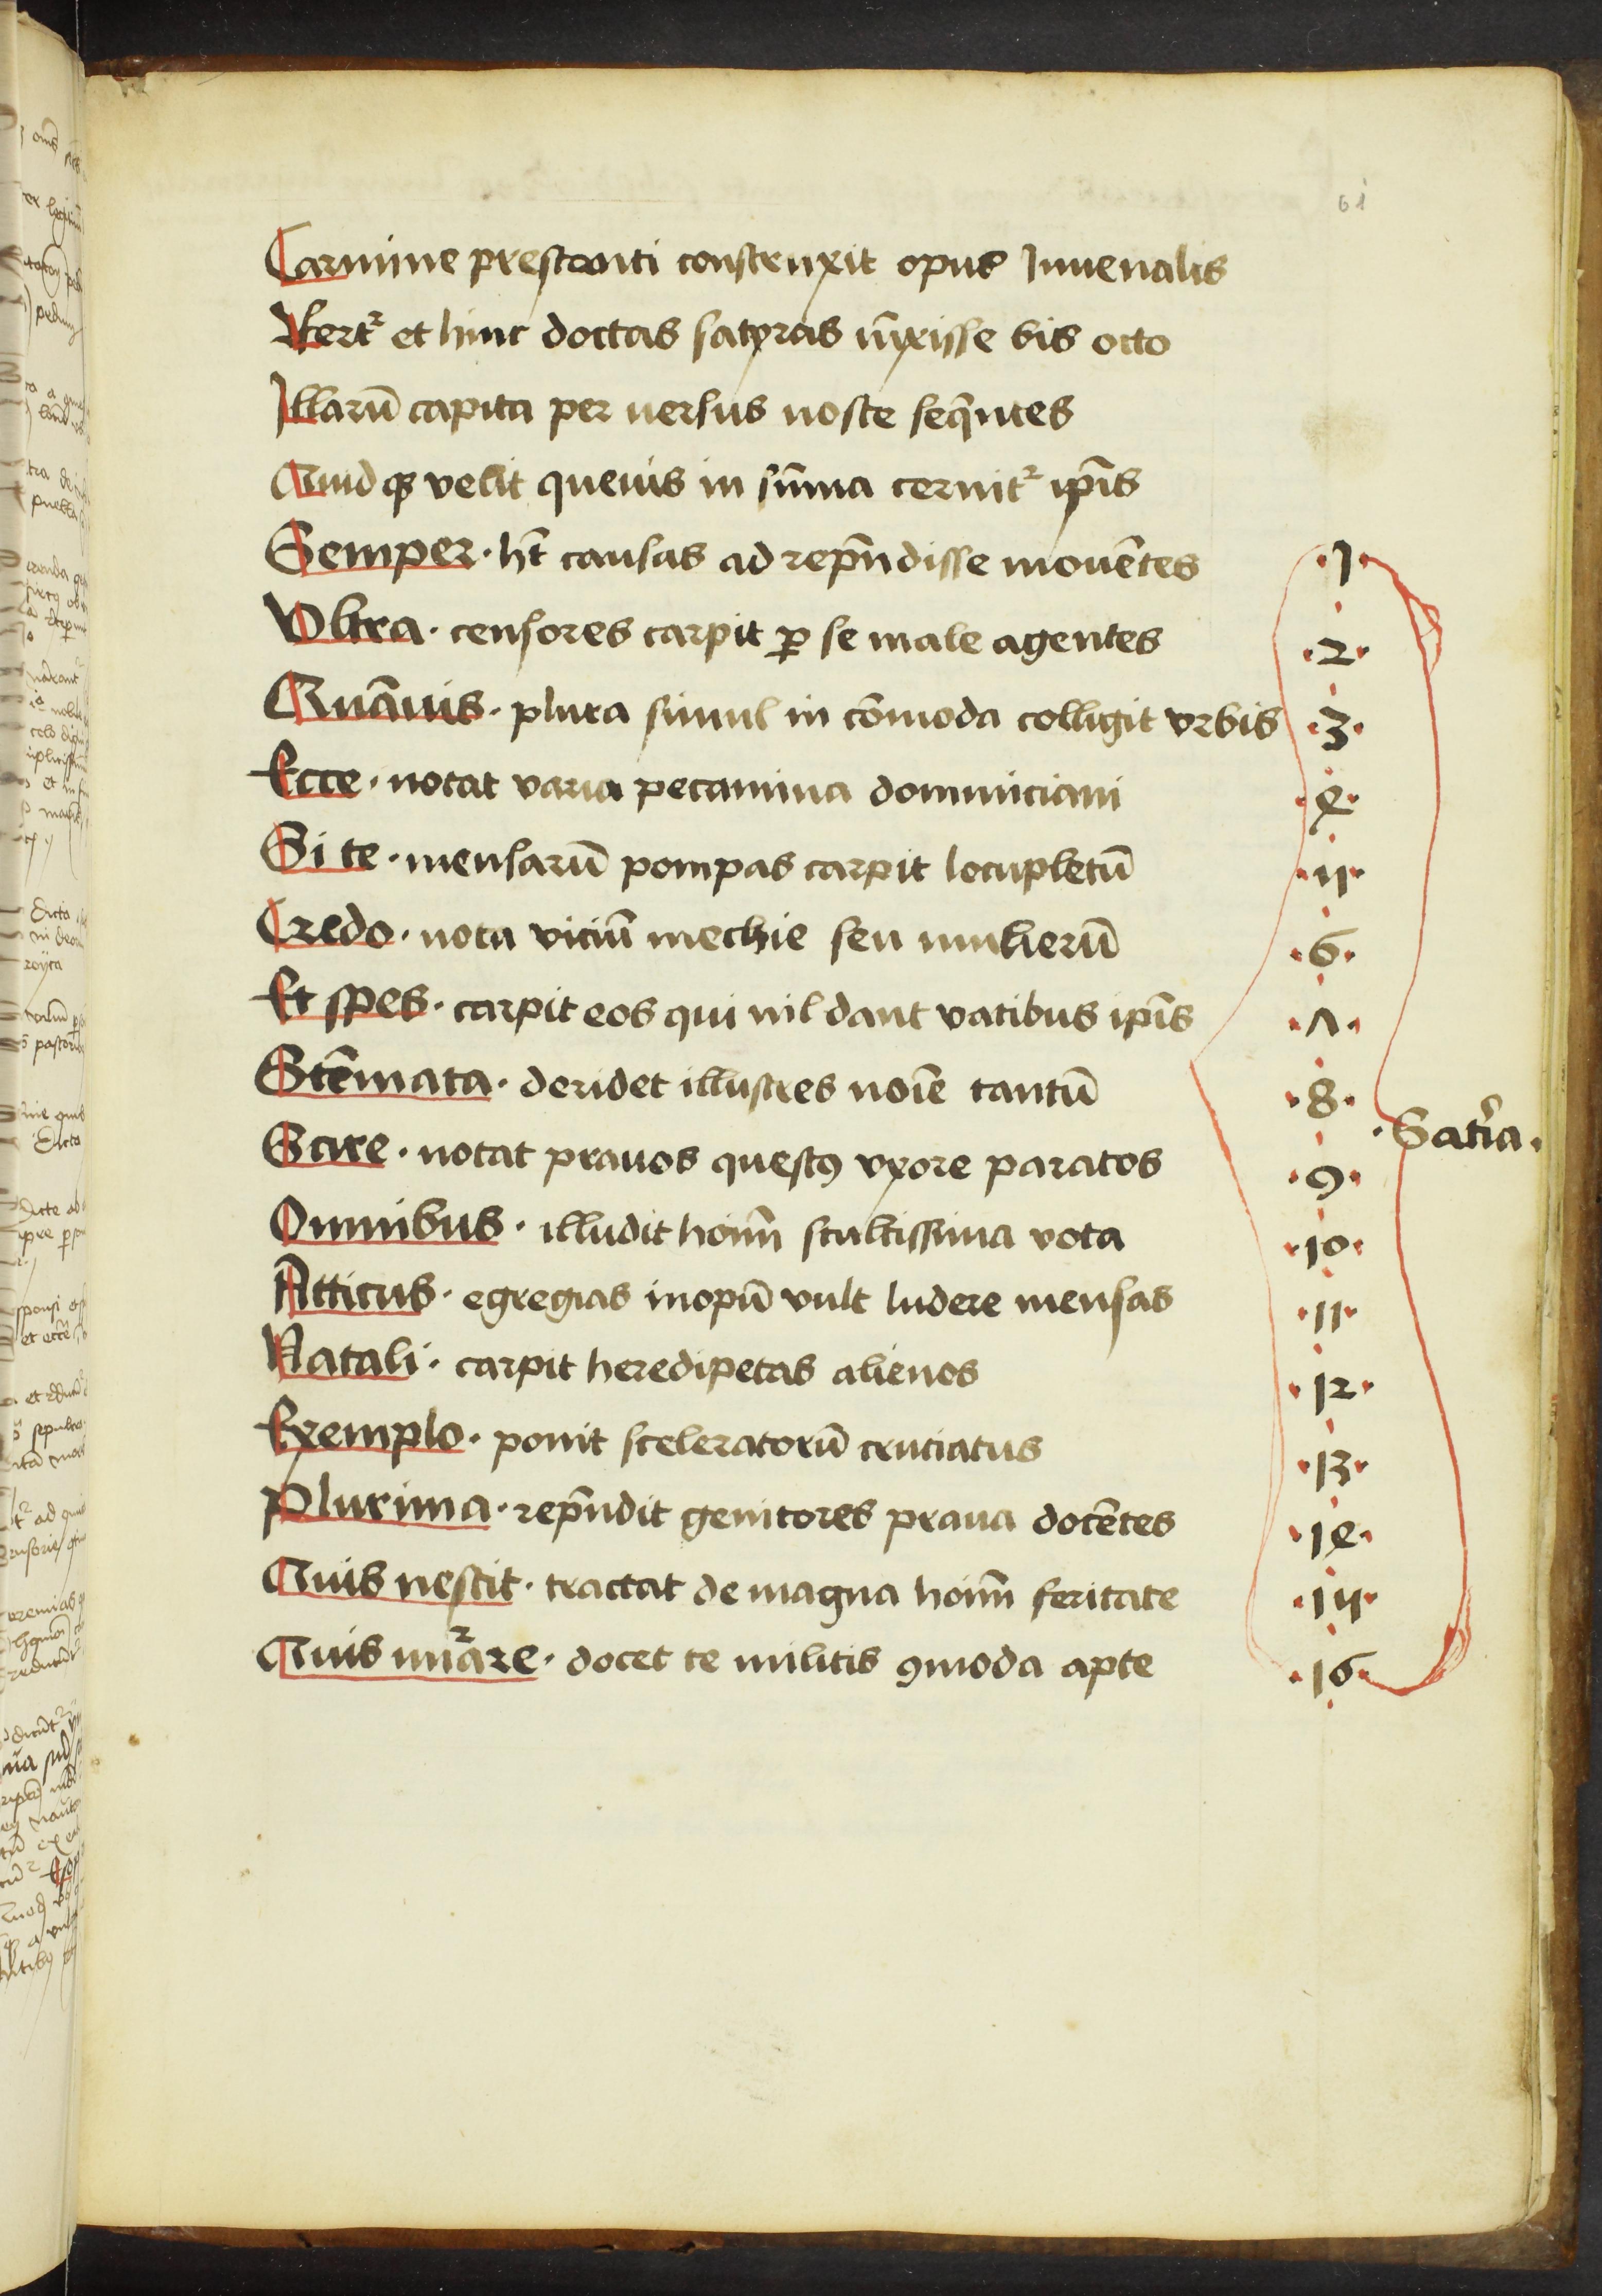 61
Carmine prestanti construxit opus Iuuenalis
Fert᷑ et hinc doctas satyras ūxisse bis octo
Illarū capita per uersus nosce seq̄ntes
Quid qꝫ velit queuis in sūma cernit᷑ ip̄is
Semper · hт̄ causas ad rep̄ndisse mouētes · 1 ·
Vltra · censores carpit ꝑ se male agentes · 2 ·
Quāuis · plura simul in cōmoda colligit vrbis · 3 ·
Ecce · notat varia pecamina dominiciani · 4 ·
Si te · mensarū pompas carpit locupletū · 5 ·
Credo · nota viciū mechie seu mulierū · 6 ·
Et spes · carpit eos qui nil dant vatibus ip̄is · 7 ·
Stēmata · deridet illustres noīe tantū · 8 ·
· Sat̉ra ·
Scire · notat prauos questꝰ vxore paratos · 9 ·
Omnibus · illudit hoīm stultissima vota · 10 ·
Atticus · egregias inopū vult ludere mensas · 11 ·
Natali · carpit heredipetas alienos · 12 ·
Exemplo · ponit sceleratorū cruciatus · 13 ·
Plurima · rep̄ndit genitores praua docētes · 14 ·
Quis nescit · tractat de magna hoīm feritate · 15 ·
Quis nūare · docet te militis ꝯmoda apte · 16 ·